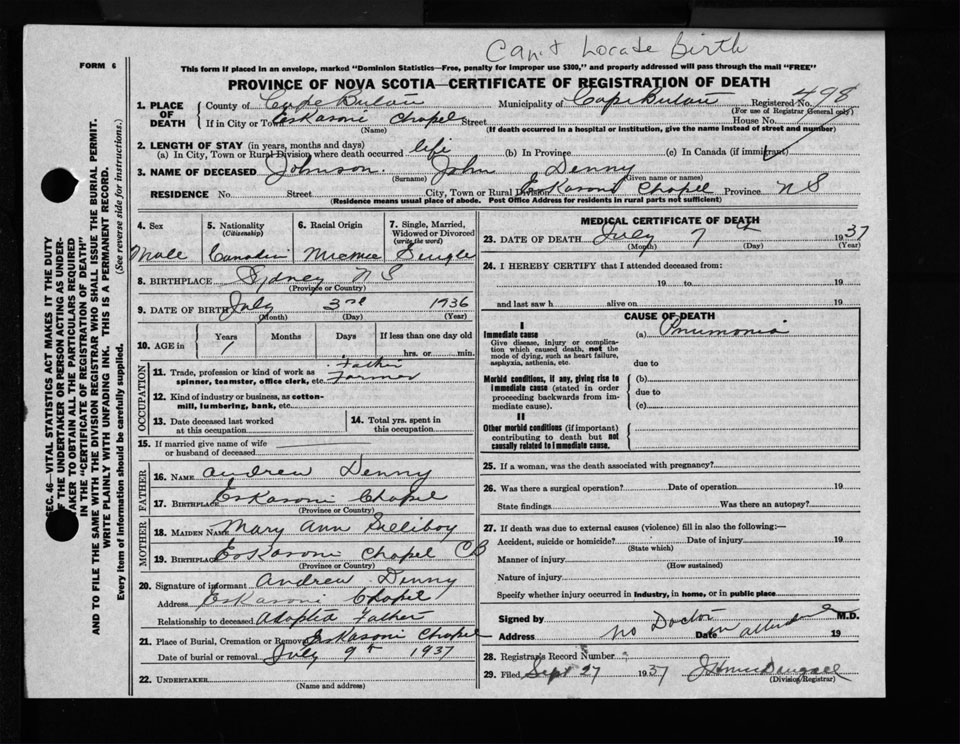 Can't Locate Birth
FORM 6
This form if placed in an envelope, marked "Dominion Statistics—Free, penalty for improper use $300," and properly addressed will pass through the mail "FREE"
PROVINCE OF NOVA SCOTIA—CERTIFICATE OF REGISTRATION OF DEATH
1. PLACE OF DEATH County of Cape Breton Municipality of Cape Breton Registered No. 498
(For use of Registrar General only)
If in City or Town Eskasoni Chapel Street House No.
(Name) (If death occurred in a hospital or institution, give the name instead of street and number)
2. LENGTH OF STAY (in years, months and days)
(a) In City, Town or Rural Division where death occurred life (b) In Province (c) In Canada (if immigrant)
3. NAME OF DECEASED Johnson. John Denny
(Surname) (Given name or names)
RESIDENCE No. Street City, Town or Rural Division Eskasoni Chapel Province N S
(Residence means usual place of abode. Post Office Address for residents in rural parts not sufficient)
4. Sex
Male
5. Nationality
(Citizenship)
Canadin
6. Racial Origin
Micmic
7. Single, Married, Widowed or Divorced
(write the word)
Single
8. BIRTHPLACE Sydney N S
(Province or Country)
9. DATE OF BIRTH July 3rd 1936
(Month) (Day) (Year)
10. AGE in Years Months Days If less than one day old
1 hrs. or min.
OCCUPATION
11. Trade, profession or kind of work as Father
spinner, teamster, office clerk, etc. Farmer
12. Kind of industry or business, as cotton-
mill, lumbering, bank, etc.
13. Date deceased last worked
at this occupation
14. Total yrs. spent in
this occupation
15. If married give name of wife
or husband of deceased
FATHER
16. NAME Andrew Denny
17. BIRTHPLACE Eskasoni Chapel
(Province or Country)
MOTHER
18. MAIDEN NAME Mary Ann Sylliboy
19. BIRTHPLACE Eskasoni Chapel CB
(Province or Country)
20. Signature of informant Andrew Denny
Address Eskasoni Chapel
Relationship to deceased Adopted Father
21. Place of Burial, Cremation or Removal Eskasoni Chapel
Date of burial or removal July 9th 1937
22. UNDERTAKER
(Name and address)
MEDICAL CERTIFICATE OF DEATH
23. DATE OF DEATH July 7th 1937
(Month) (Day) (Year)
24. I HEREBY CERTIFY that I attended deceased from:
19 to 19
and last saw h alive on 19
CAUSE OF DEATH
I
Immediate cause (a) Pnumonia
Give disease, injury or complica-
tion which caused death, not the
mode of dying, such as heart failure,
asphyxia, asthenia, etc. due to
Morbid conditions, if any, giving rise to (b)
immediate cause (stated in order due to
proceeding backwards from im-
mediate cause). (c)
II
Other morbid conditions (if important)
contributing to death but not
causally related to immediate cause.
25. If a woman, was the death associated with pregnancy?
26. Was there a surgical operation? Date of operation 19
State findings Was there an autopsy?
27. If death was due to external causes (violence) fill in also the following:—
Accident, suicide or homicide? Date of injury 19
(State which)
Manner of injury
(How sustained)
Nature of injury
Specify whether injury occurred in industry, in home, or in public place
Signed by M.D.
Address no Doctor in attend Date 19
28. Registrar's Record Number
29. Filed Sept 27 1937
(Division Registrar)
SEC. 46—VITAL STATISTICS ACT MAKES IT THE DUTY
OF THE UNDERTAKER OR PERSON ACTING AS UNDER-
TAKER TO OBTAIN ALL THE PARTICULARS REQUIRED
IN THE "CERTIFICATE OF REGISTRATION OF DEATH"
AND TO FILE THE SAME WITH THE DIVISION REGISTRAR WHO SHALL ISSUE THE BURIAL PERMIT.
WRITE PLAINLY WITH UNFADING INK. THIS IS A PERMANENT RECORD.
Every item of information should be carefully supplied. (See reverse side for instructions.)